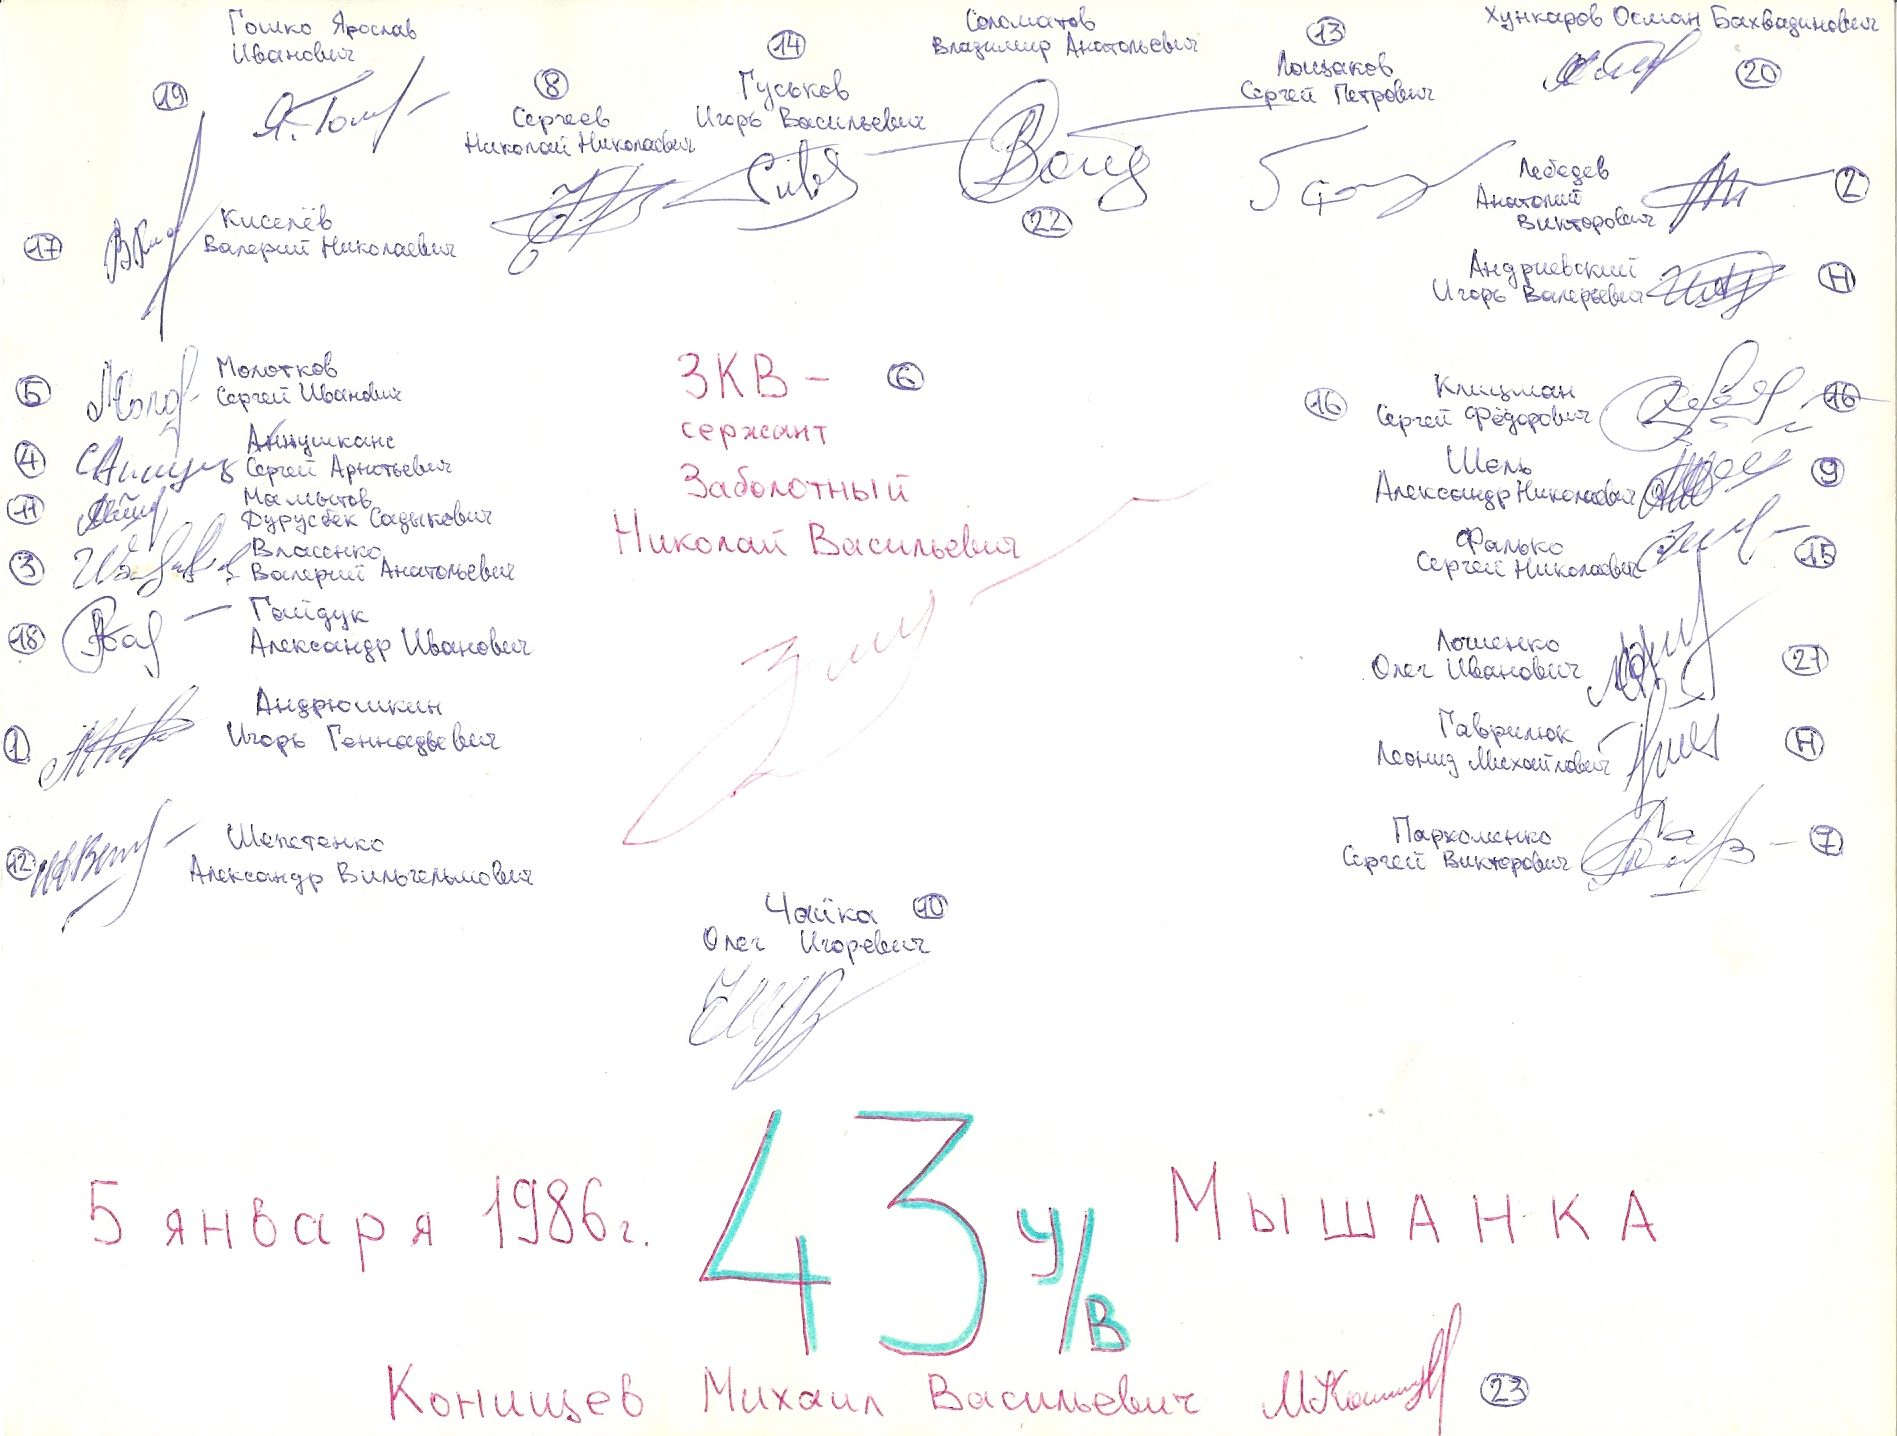 Гошко Ярослав
Иванович
19
8
Сергеев
Николай Николаевич
14
Гуськов
Игорь Васильевич
Соломатов
Владимир Анатольевич
22
13
Лощаков
Сергей Петрович
Хункаров Осман Бахвадинович
20
17
Киселёв
Валерий Николаевич
Лебедев
Анатолий
Викторович
2
Андриевский
Игорь Валерьевич
Н
5
Молотков
Сергей Иванович
4
Аннушканс
Сергей Арнотьевич
11
Мамытов
Фурусбек Садыкович
3
Власенко
Валерий Анатольевич
18
Гайдук
Александр Иванович
1
Андрюшкин
Игорь Геннадьевич
12
Шепетенко
Александр Вильгельмович
ЗКВ – 6
сержант
Заболотный
Николай Васильевич
16
Клицман
Сергей Фёдорович
16
Шель
Александр Николаевич
9
Фалько
Сергей Николаевич
15
Лошенко
Олег Иванович
21
Гаврилюк
Леонид Михайлович
Н
Пархоменко
Сергей Викторович
7
Чайка 10
Олег Игоревич
5 января 1986г. 43 у/в Мышанка
Конищев Михаил Васильевич 23